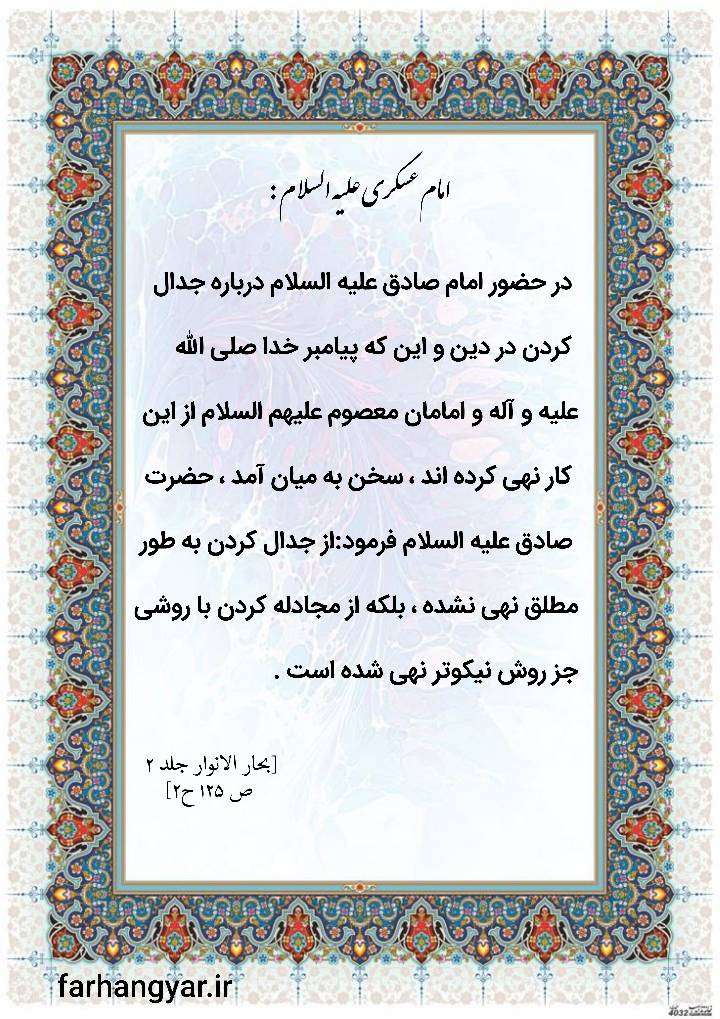 امام عسکری علیه السلام :
در حضور امام صادق علیه السلام درباره جدال
کردن در دین و این که پیامبر خدا صلی الله
علیه و آله و امامان معصوم علیهم السلام از این
کار نهی کرده اند ، سخن به میان آمد ، حضرت
صادق علیه السلام فرمود:از جدال کردن به طور
مطلق نهی نشده ، بلکه از مجادله کردن با روشی
جز روش نیکوتر نهی شده است .
[بحار الانوار جلد ۲
ص ۱۲۵ ح۲]
farhangyar.ir
4032